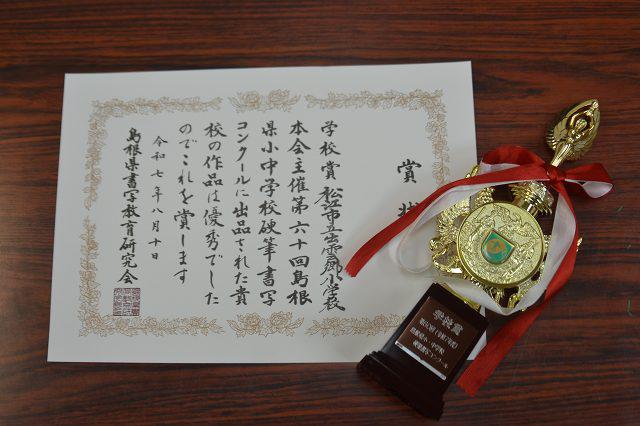 賞
学校賞 松江市立出雲郷小学校
本会主催第六十回島根
県小中学校硬筆書写
コンクールに出品された貴
校の作品は優秀でした
のでこれを賞します
令和七年八月十日
島根県書写教育研究会
学校賞